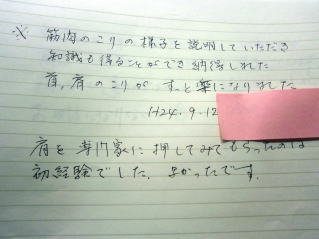 ※ 筋肉のこりの様子を説明していただき
知識も得ることができ納得しました
首,肩のこりが すっと楽になりました
H24.9.12
肩を専門家に押してみてもらったのは
初経験でした。よかったです。